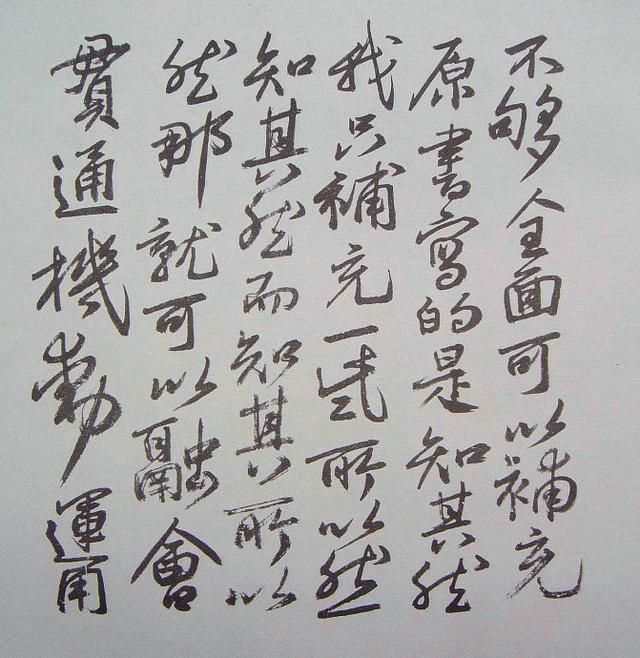 不够全面可以補充
原書寫的是知其然
我只補充一些所以然
知其然而知其所以
然那就可以融會
貫通機動運用